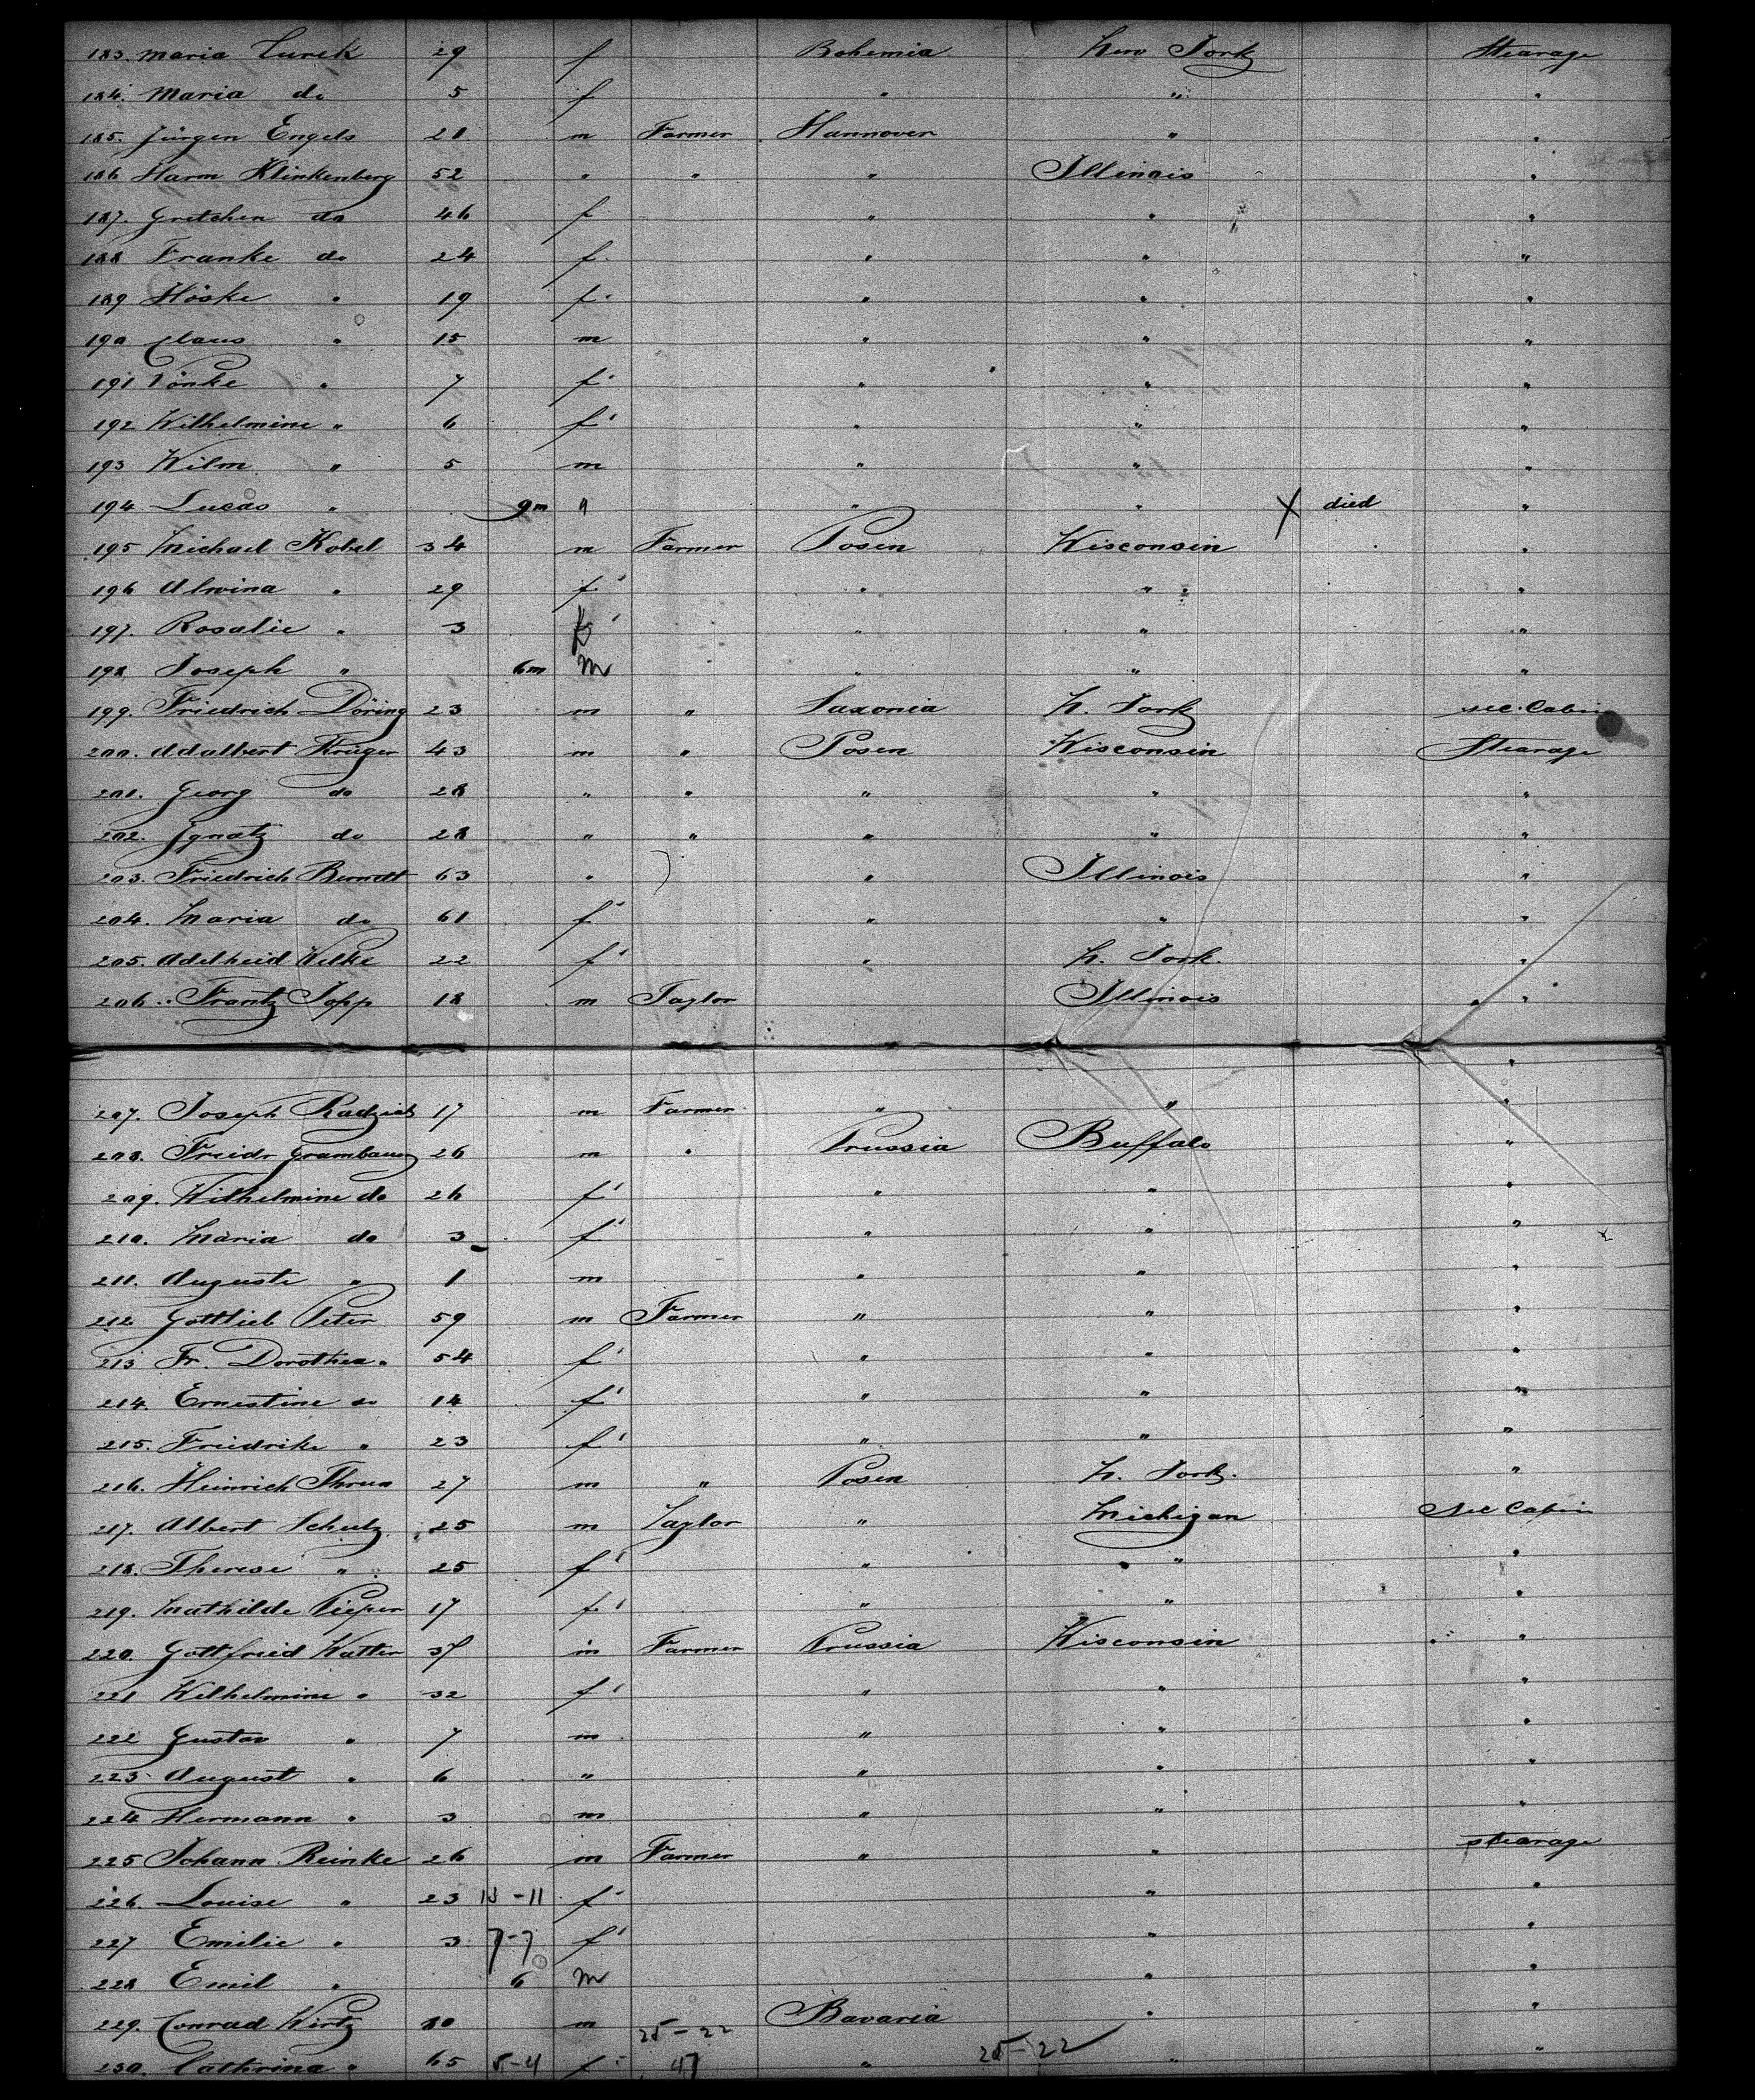 183. Maria Turek 29 f Bohemia New York Stearage
184. Maria do 5 f " " "
185. Jürgen Engels 28 m Farmer Hannover " "
186 Harm Klinkenberg 52 " " " Illinois "
187. Gretchen do 46 f " " "
188 Franke do 24 f. " " "
189 Höske " 19 f. " " "
190 Claus " 15 m " " "
191 Tönke " 7 f " " "
192 Wilhelmine " 6 f " " "
193 Wilm " 5 m " " "
194 Lucas " 9m " " " X died "
195 Michael Kobel 34 m Farmer Posen Wisconsin "
196 Alwina " 29 f " " "
197. Rosalie " 3 f " " "
198 Joseph " 6m m " " "
199. Friedrich Döring 23 m " Saxonia N. York sec. Cabin
200. Adalbert Krüger 43 m " Posen Wisconsin Stearage
201. Georg do 28 " " " " "
202. Ignatz do 28 " " " " "
203. Friedrich Berndt 63 " " Illinois "
204. Maria do 61 f " " "
205. Adelheid Welke 22 f " N. York. "
206. Frantz Topp 18 m Taylor Illinois "
"
207. Joseph 17 m Farmer " " "
208. Friedr 26 m " Prussia Buffalo "
209. Wilhelmine do 26 f " " "
210. Maria do 3 f " " "
211. Auguste " 1 m " " "
212 Gottlieb Peter 59 m Farmer " " "
213 Fr. Dorothea " 54 f " " "
214. Ernestine do 14 f " " "
215. Friedrike " 23 f " " "
216. Heinrich Thrun 27 m " Posen N. York. "
217. Albert Schulz 25 m Taylor " Michigan Sec Cabin
218. Therese " 25 f " " "
219. Mathilde Pieper 17 f " " "
220. Gottfried Watter 37 m Farmer Prussia Wisconsin "
221 Wilhelmine " 32 f " " "
222 Gustav " 7 m " " "
223 August " 6 " " " "
224 Hermann " 3 m " " "
225 Johann Reinke 26 m Farmer " " stearage
226. Louise " 23 18-11 f " "
227 Emilie " 3 7-7 f " "
228 Emil " 6 m " "
229. Conrad Wirtz m 25-22 Bavaria " "
230. Cathrina " 65 5-4 f 47 " 25-22 " "